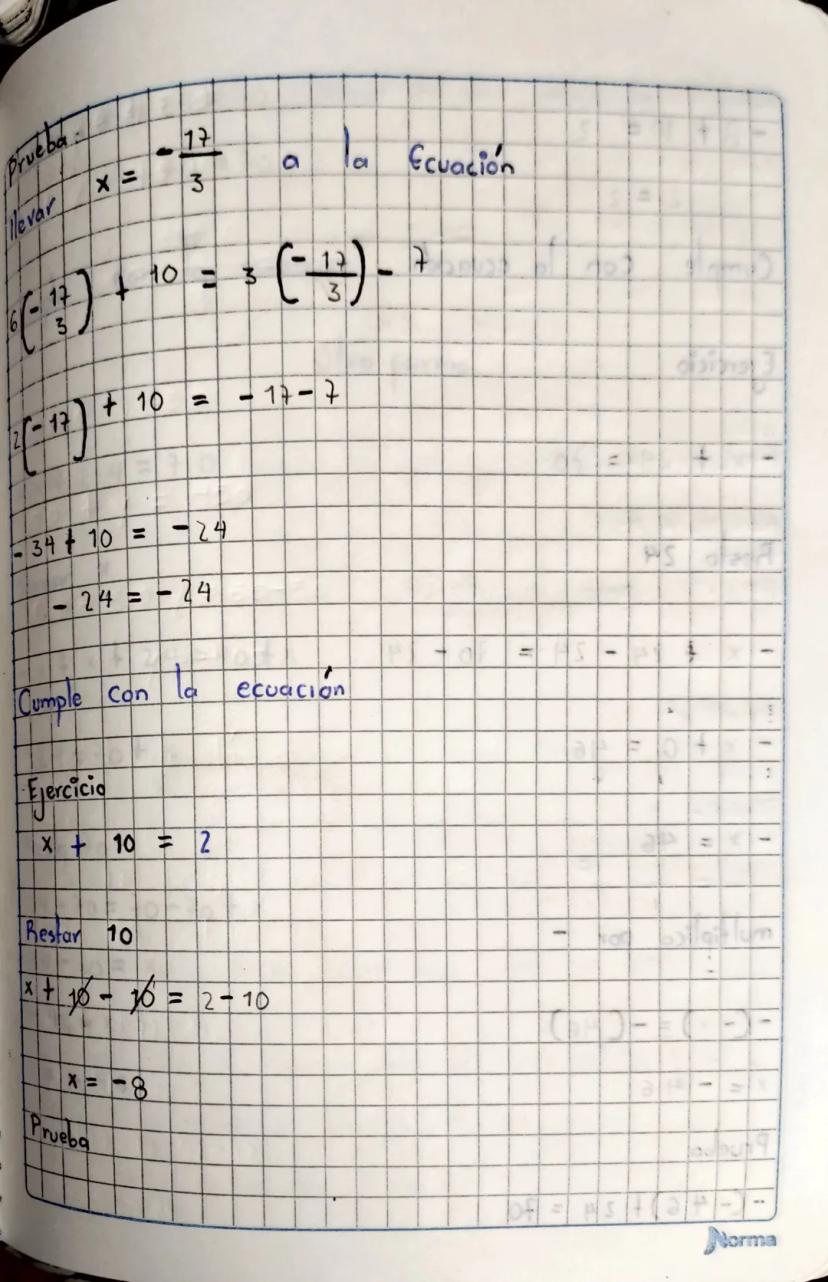 Prueba:
llevar x = -17/3 a la Ecuación
6(-17/3) + 10 = 3(-17/3) - 7
2(-17) + 10 = -17-7
-34+10 = -24
-24 = -24
Cumple con la ecuación
Ejercicio
x + 10 = 2
Restar 10
x + 10 - 10 = 2-10
x = -8
Prueba
Norma